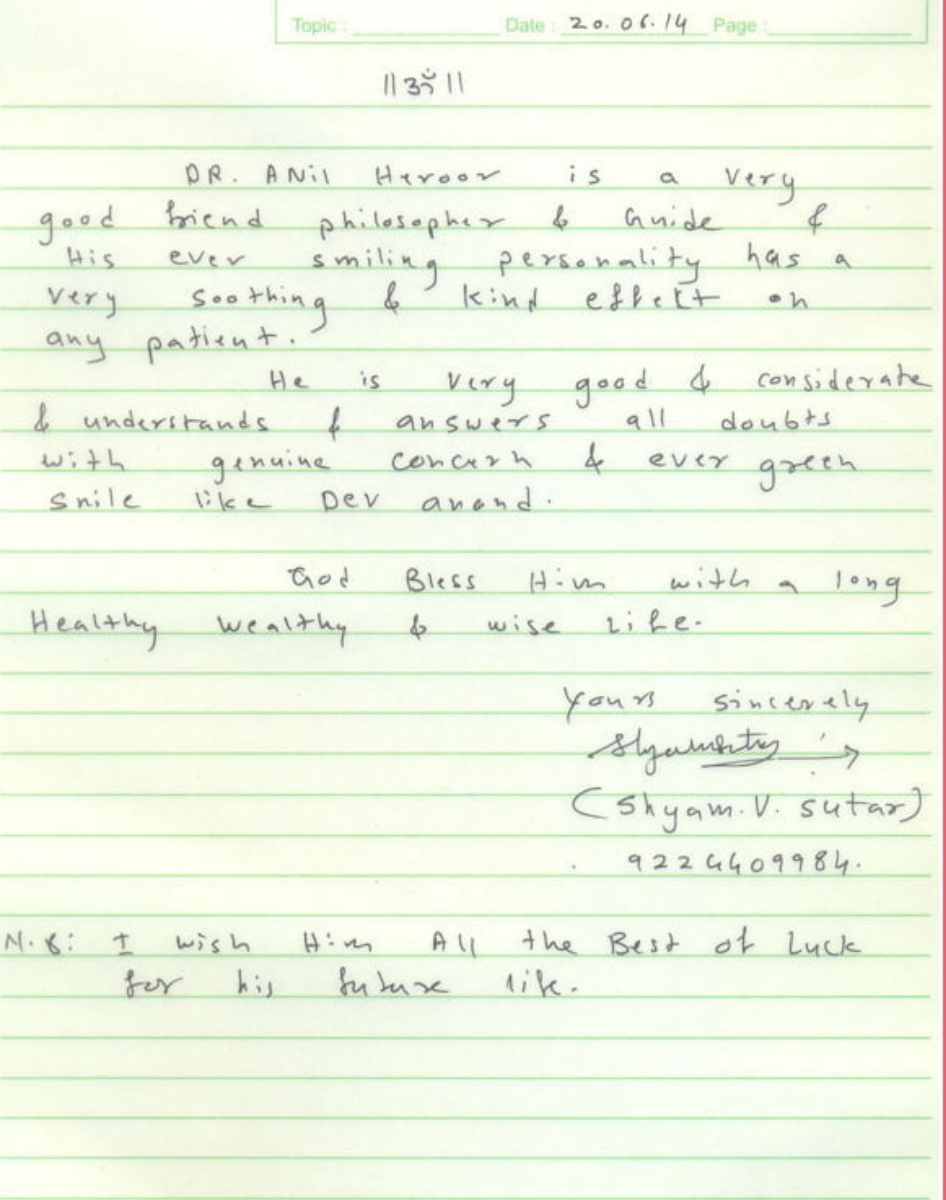 Topic : Date : 20.06.14 Page :
||ॐ||
DR. ANil Heroor is a very
good friend philosopher & Guide &
His ever smiling personality has a
very soothing & kind effect on
any patient.
He is very good & considerate
& understands & answers all doubts
with genuine concern & ever green
smile like Dev anand.
God Bless Him with a long
Healthy wealthy & wise Life.
Yours sincerely
(Shyam.V. sutar)
9224409984.
N.B: I wish Him All the Best of Luck
for his future life.